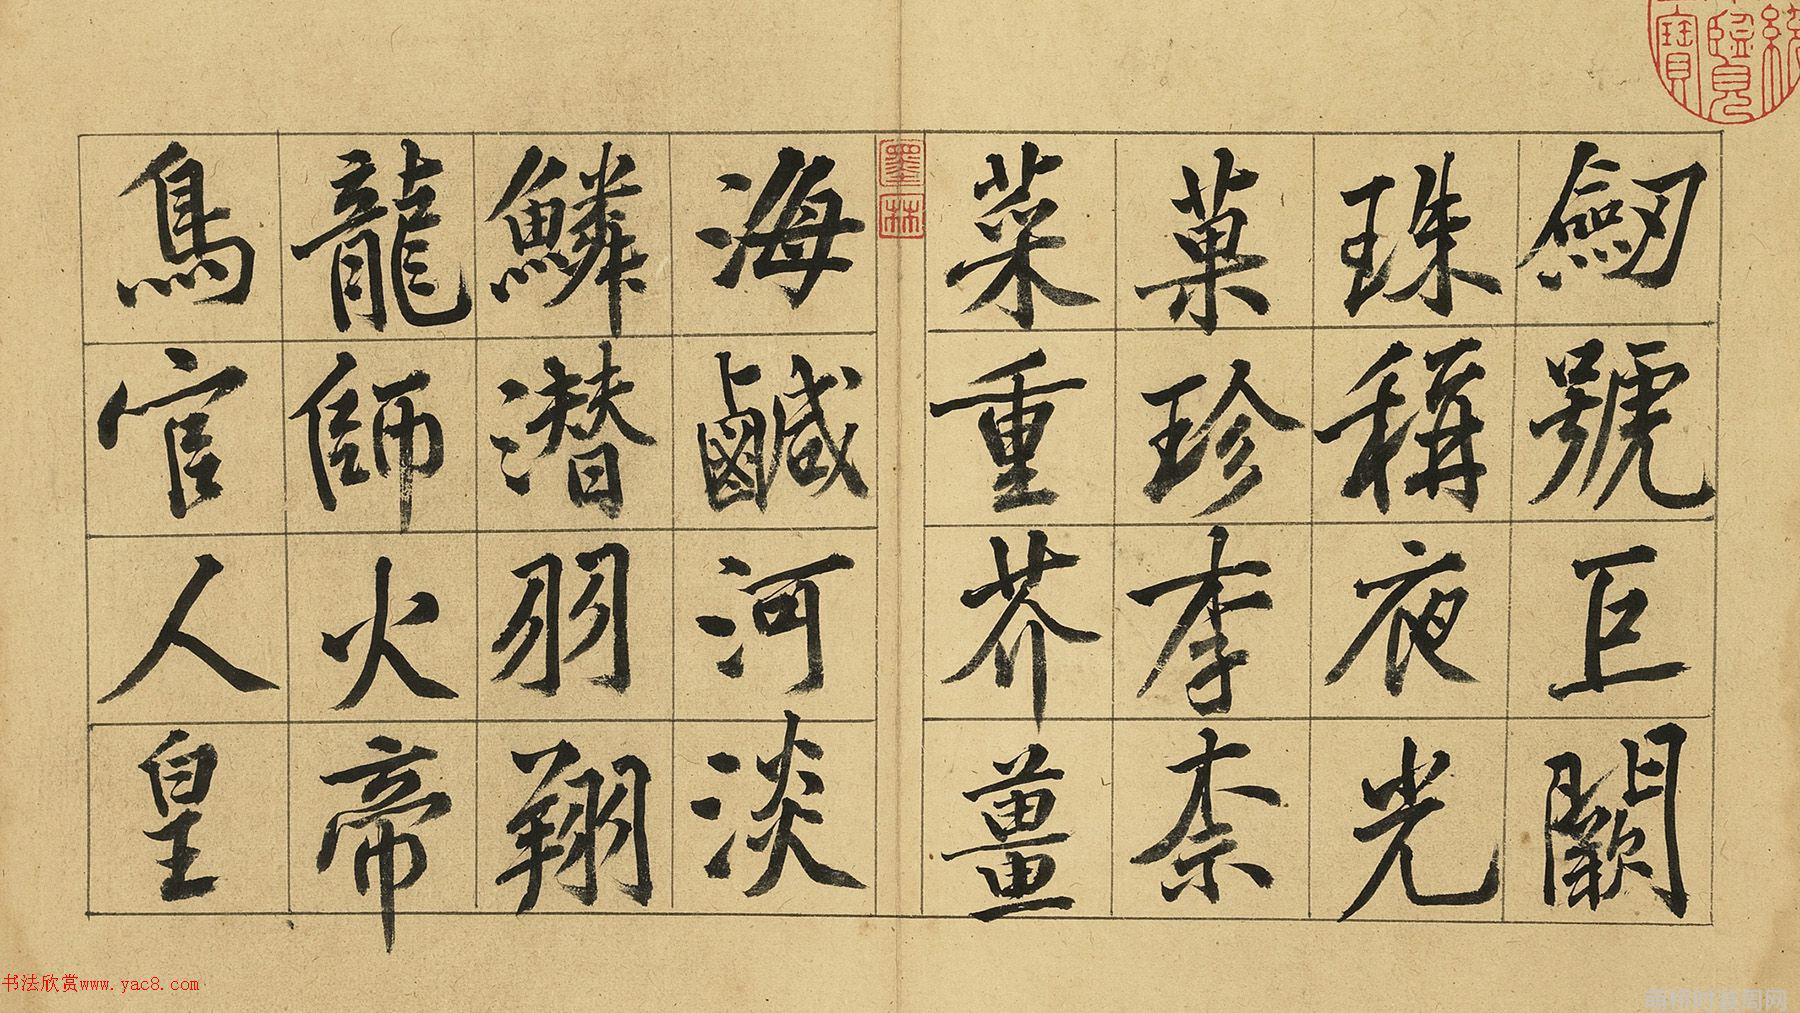 劒號巨闕
珠稱夜光
菓珍李柰
菜重芥薑
海鹹河淡
鱗潛羽翔
龍師火帝
鳥官人皇
墨林
书法欣赏www.yac8.com